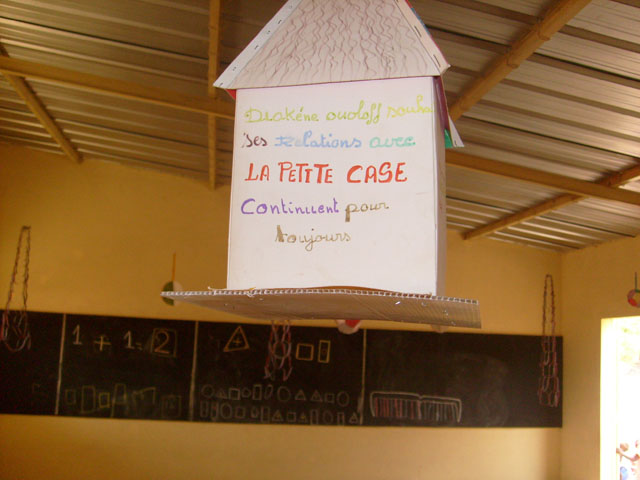 Diakéne ouoloff souha
ses relations avec
LA PETITE CASE
Continuent pour
toujours
1 + 1 2